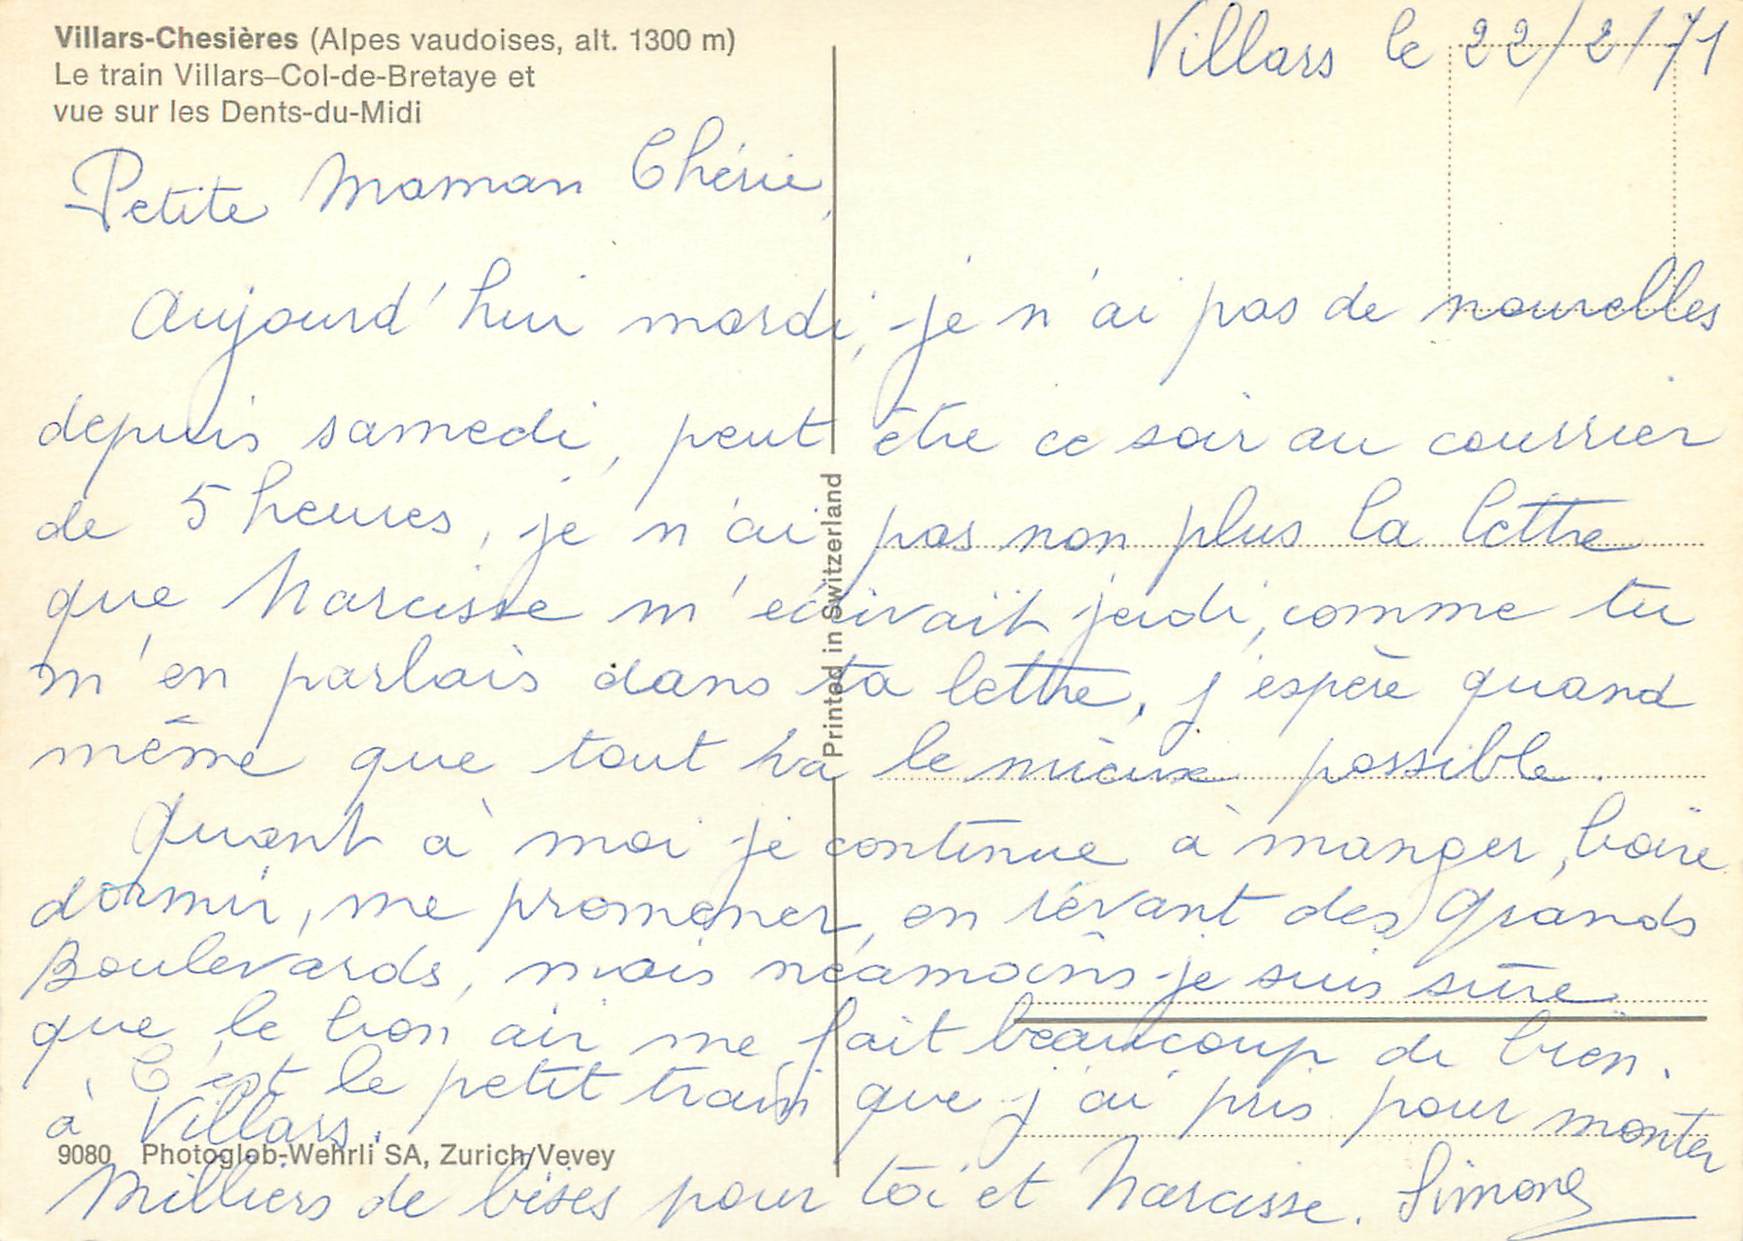 Villars-Chesières (Alpes vaudoises, alt. 1300 m)
Le train Villars–Col-de-Bretaye et
vue sur les Dents-du-Midi
Villars le 22/2/71
Petite Maman Chérie,
Aujourd'hui mardi, je n'ai pas de nouvelles
depuis samedi, peut être ce soir au courrier
de 5 heures, je n'ai pas non plus la lettre
que Narcisse m'écrivait jeudi, comme tu
m'en parlais dans ta lettre, j'espère quand
même que tout va le mieux possible.
Quant à moi je continue à manger, boire
dormir, me promener, en rêvant des Grands
Boulevards, mais néamoins je suis sûre
que le bon air me fait beaucoup de bien.
C'est le petit train que j'ai pris pour monter
à Villars.
Milliers de bises pour toi et Narcisse. Simone
Printed in Switzerland
9080 Photoglob-Wehrli SA, Zurich/Vevey